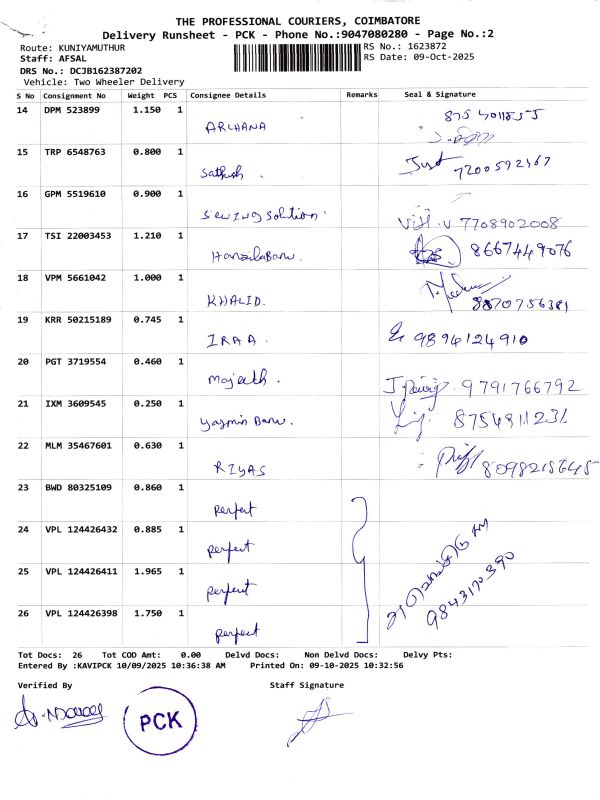 THE PROFESSIONAL COURIERS, COIMBATORE
Delivery Runsheet - PCK - Phone No.:9047080280 - Page No.:2
Route: KUNIYAMUTHUR
RS No.: 1623872
Staff: AFSAL
RS Date: 09-Oct-2025
DRS No.: DCJB162387202
Vehicle: Two Wheeler Delivery
S No Consignment No Weight PCS Consignee Details Remarks Seal & Signature
14 DPM 523899 1.150 1 ARCHANA
15 TRP 6548763 0.800 1 Sathish
16 GPM 5519610 0.900 1 Sewing Solution 7708902008
17 TSI 22003453 1.210 1 8667449076
18 VPM 5661042 1.000 1 KHALID. 8870756381
19 KRR 50215189 0.745 1 IRAA 9894124910
20 PGT 3719554 0.460 1 Majeeth. 9791766792
21 IXM 3609545 0.250 1 Yazmin Banu. 8754811231
22 MLM 35467601 0.630 1 RIYAS 8098215645
23 BWD 80325109 0.860 1 perfect
24 VPL 124426432 0.885 1 perfect
25 VPL 124426411 1.965 1 perfect
26 VPL 124426398 1.750 1 perfect
9843170390
Tot Docs: 26 Tot COD Amt: 0.00 Delvd Docs: Non Delvd Docs: Delvy Pts:
Entered By :KAVIPCK 10/09/2025 10:36:38 AM Printed On: 09-10-2025 10:32:56
Verified By Staff Signature
PCK